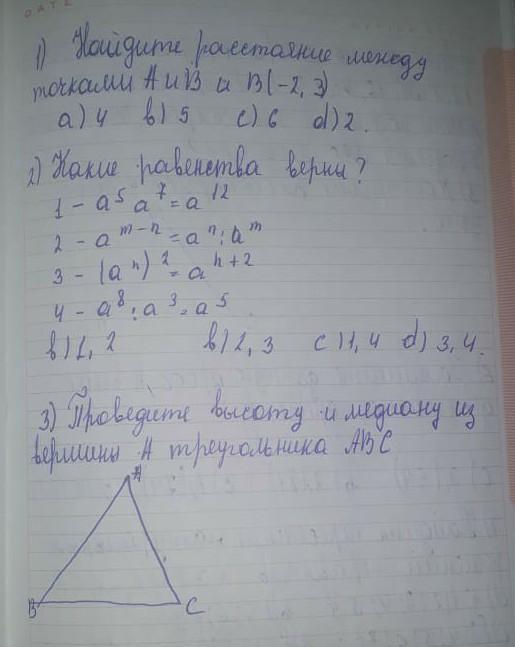 DATE
1) Найдите расстояние между
точками А и В и В(-2, 3)
a) 4 b) 5 c) 6 d) 2.
2) Какие равенства верны?
1 - a⁵ a⁷ = a¹²
2 - a^(m-n) = aⁿ : a^m
3 - (aⁿ)² = a^(n+2)
4 - a⁸ : a³ = a⁵
b) 1, 2 b) 2, 3 c) 1, 4 d) 3, 4.
3) Проведите высоту и медиану из
вершины А треугольника АВС
A
B C